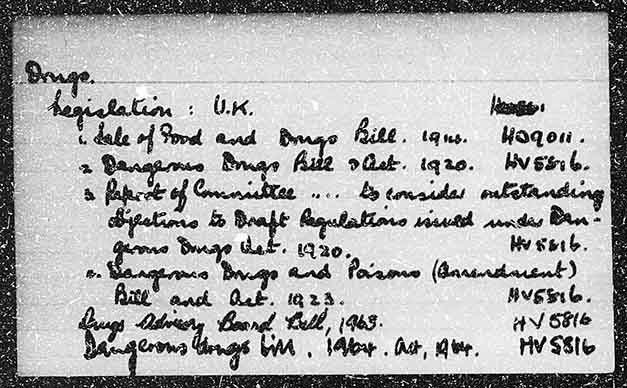 Drugs.
Legislation : U.K.
1. Sale of Food and Drugs Bill. HD9011.
2. Dangerous Drugs Bill & Act. 1920. HV5816.
3. Report of Committee .... to consider outstanding
objections to Draft Regulations issued under Dan-
gerous Drugs Act. 1920. HV5816.
4. Dangerous Drugs and Poisons (Amendment)
Bill and Act. 1923. HV5816.
Drugs Advisory Board Bill, 1963. HV5816
Dangerous drugs bill. 1964. Act, 1964. HV5816